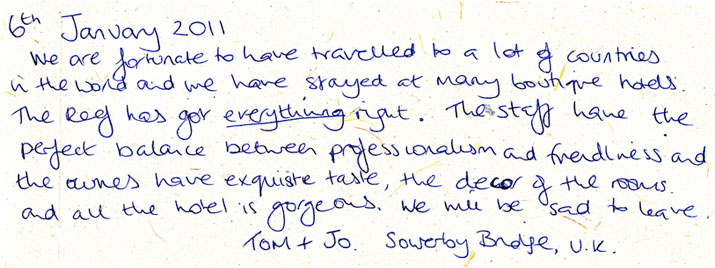 6th January 2011
We are fortunate to have travelled to a lot of countries
in the world and we have stayed at many boutique hotels.
The Reef has got everything right. The staff have the
perfect balance between professionalism and friendliness and
the owners have exquisite taste, the decor of the rooms
and all the hotel is gorgeous. We will be sad to leave.
Tom + Jo. Sowerby Bridge, U.K.